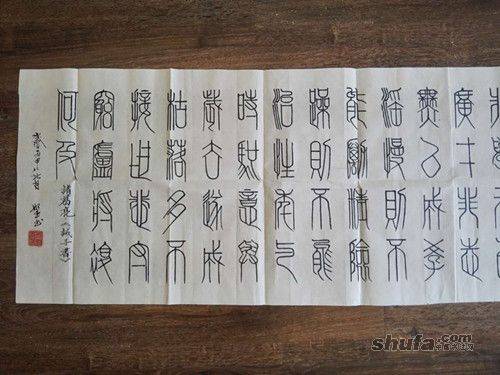 廣才非志
無以成學
淫慢則不
能勵精險
躁則不能
治性年与
時馳意與
歲去遂成
枯落多不
接世悲守
窮廬將復
何及
諸葛亮《誡子書》
shufa.com